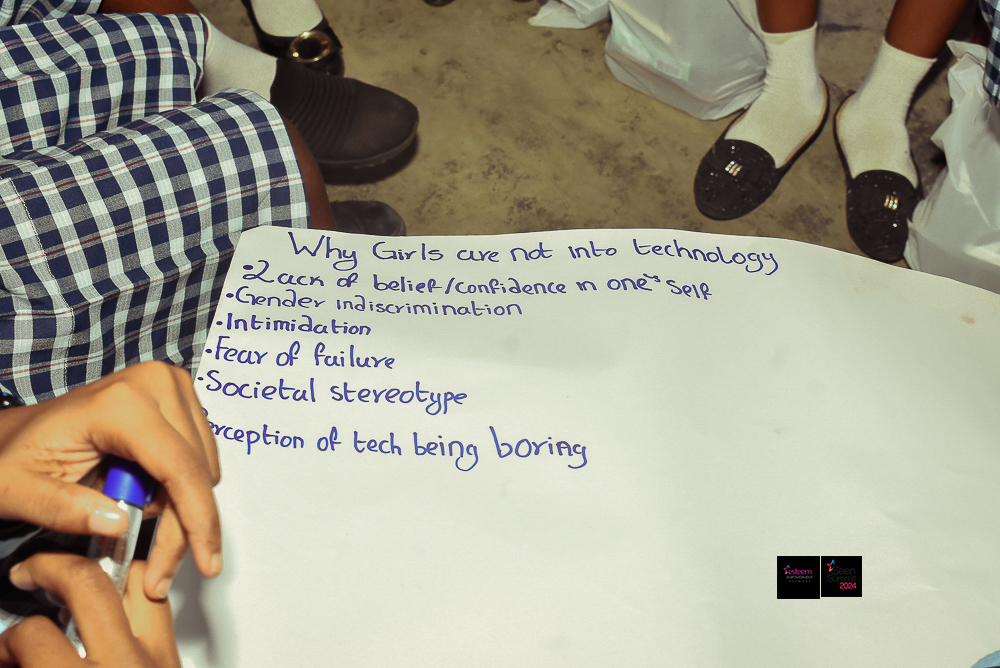 Why Girls are not into technology
• Lack of belief/confidence in one's self
• Gender indiscrimination
• Intimidation
• Fear of failure
• Societal stereotype
erception of tech being boring
esteem
EMPOWERMENT
NETWORK
Seen
Summit
2024